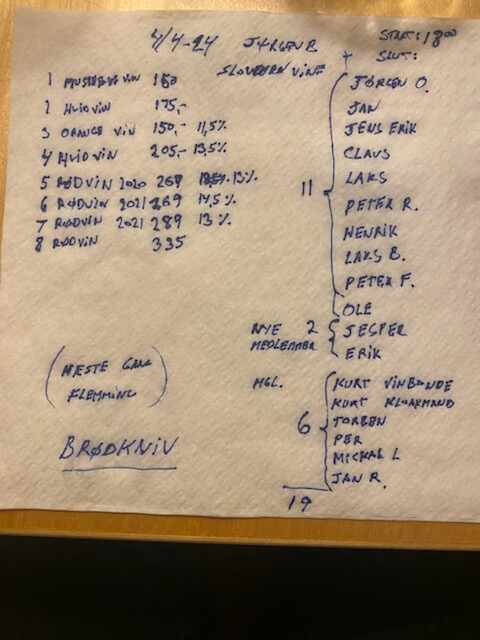 4/4-24 JØRGEN P.
START: 18⁰⁰
SLUT:
SLOVENSK VINE
1 MUSSERENDE VIN 150
2 HVIDVIN 175,-
3 ORANGE VIN 150,- 11,5%
4 HVIDVIN 205,- 13,5%
5 RØDVIN 2020 269 13%
6 RØDVIN 2021 269 14,5%
7 RØDVIN 2021 289 13%
8 RØDVIN 335
11
JØRGEN O.
JAN
JENS ERIK
CLAUS
LARS
PETER R.
HENRIK
LARS B.
PETER F.
OLE
NYE 2
MEDLEMMER
JESPER
ERIK
MGL. 6
KURT VINBONDE
KURT KLOAKMAND
TORBEN
PER
MICKAL L
JAN R.
19
(NÆSTE GANG
FLEMMING)
BRØDKNIV